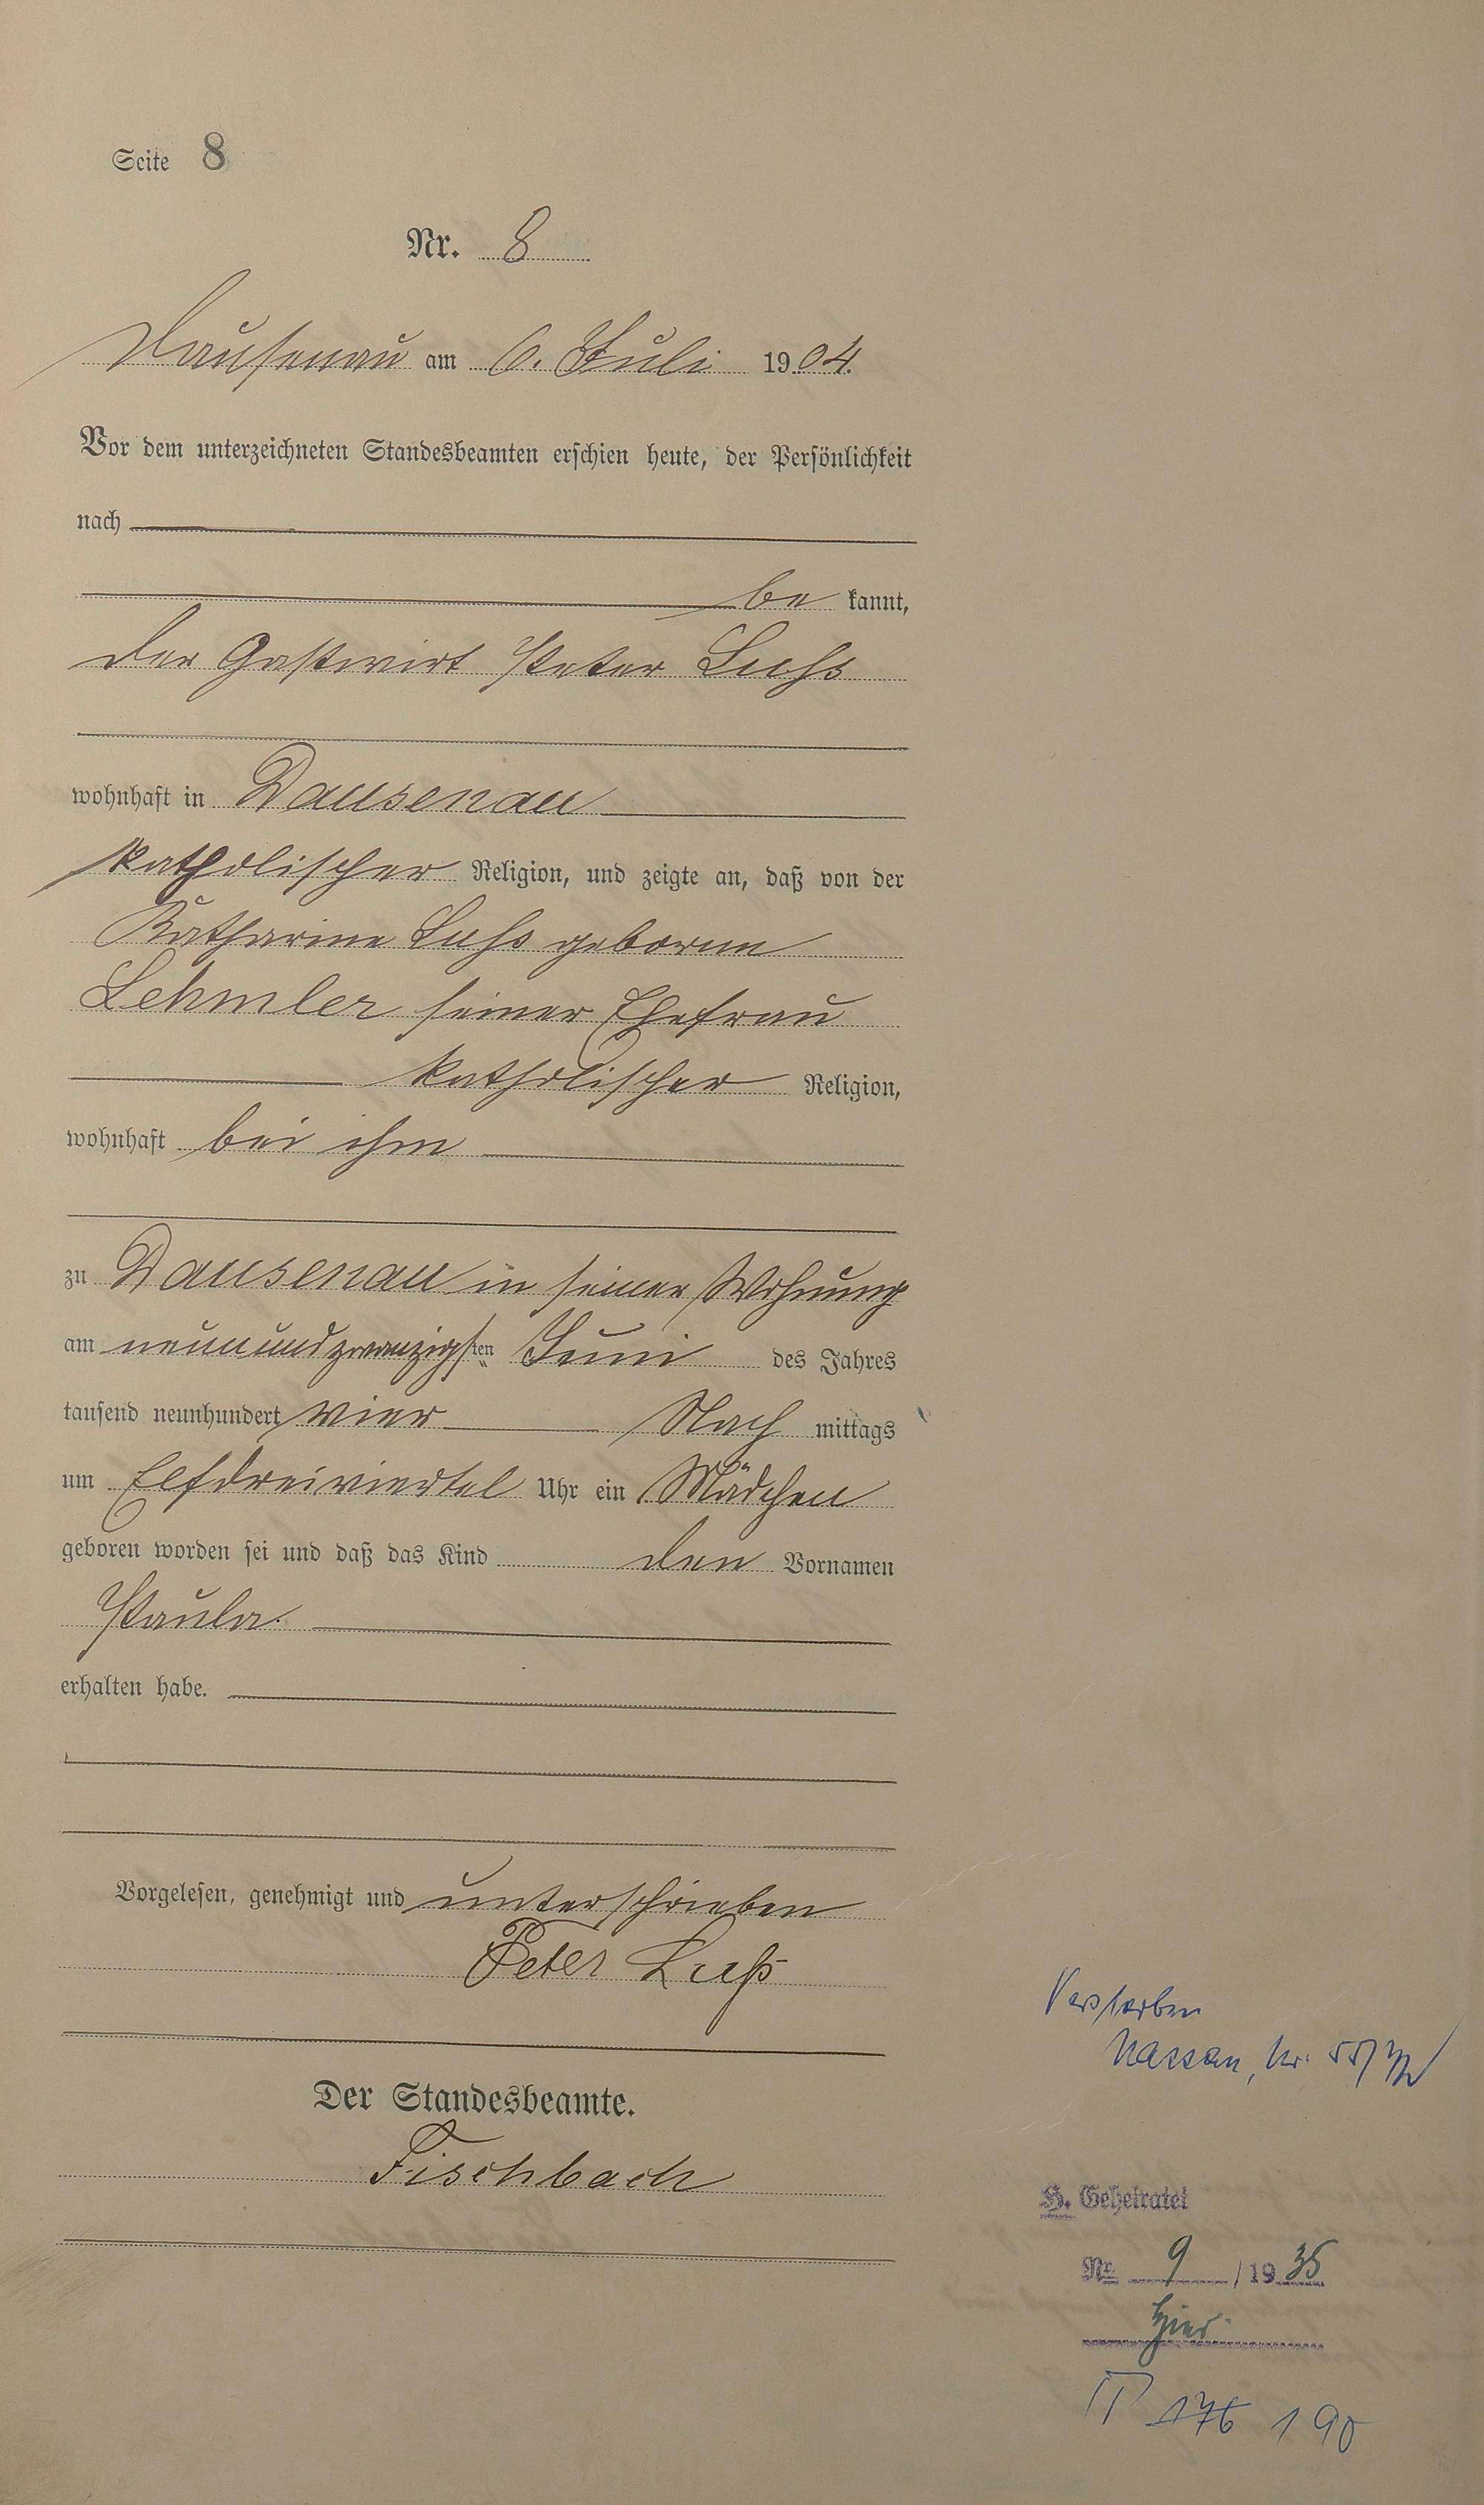 Seite 8
Nr. 8
Dausenau am 6. Juli 1904.
Vor dem unterzeichneten Standesbeamten erschien heute, der Persönlichkeit
nach
be kannt,
der Gastwirt Peter Luhs
wohnhaft in Dausenau
katholischer Religion, und zeigte an, daß von der
Katharine Luhs geborene
Lehmler seiner Ehefrau
katholischer Religion,
wohnhaft bei ihm
zu Dausenau in seiner Wohnung
am neunundzwanzigsten Juni des Jahres
tausend neunhundert vier Nach mittags
um Elfdreiviertel Uhr ein Mädchen
geboren worden sei und daß das Kind den Vornamen
Paula.
erhalten habe.
Vorgelesen, genehmigt und unterschrieben
Peter Luhs
Verstorben
Nassau, Nr. 55/
Der Standesbeamte.
Fischbach
H. Geheiratet
Nr. 9 /1935
hier
176 190